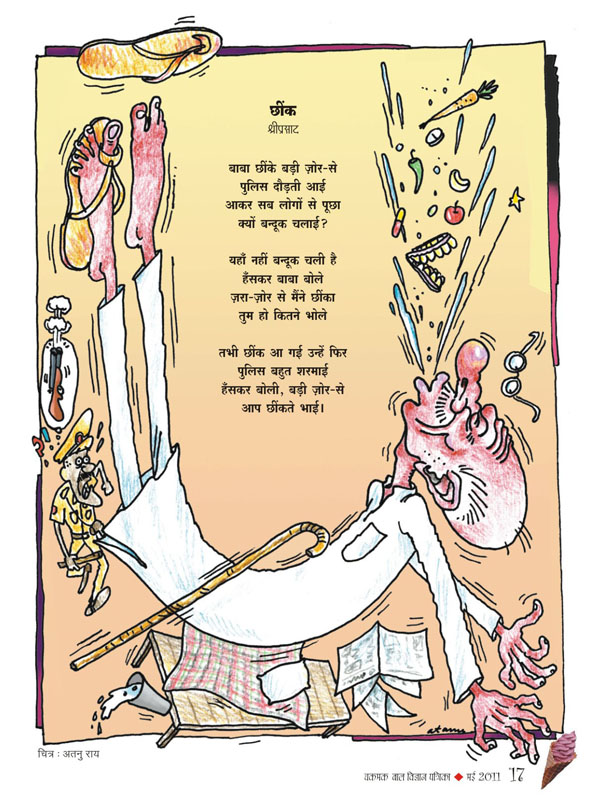 छींक
श्रीप्रसाद
बाबा छींके बड़ी ज़ोर-से
पुलिस दौड़ती आई
आकर सब लोगों से पूछा
क्यों बन्दूक चलाई?
यहाँ नहीं बन्दूक चली है
हँसकर बाबा बोले
ज़रा-ज़ोर से मैंने छींका
तुम हो कितने भोले
तभी छींक आ गई उन्हें फिर
पुलिस बहुत शरमाई
हँसकर बोली, बड़ी ज़ोर-से
आप छींकते भाई।
atanu
चित्र : अतनु राय
चकमक बाल विज्ञान पत्रिका ◆ मई 2011 17